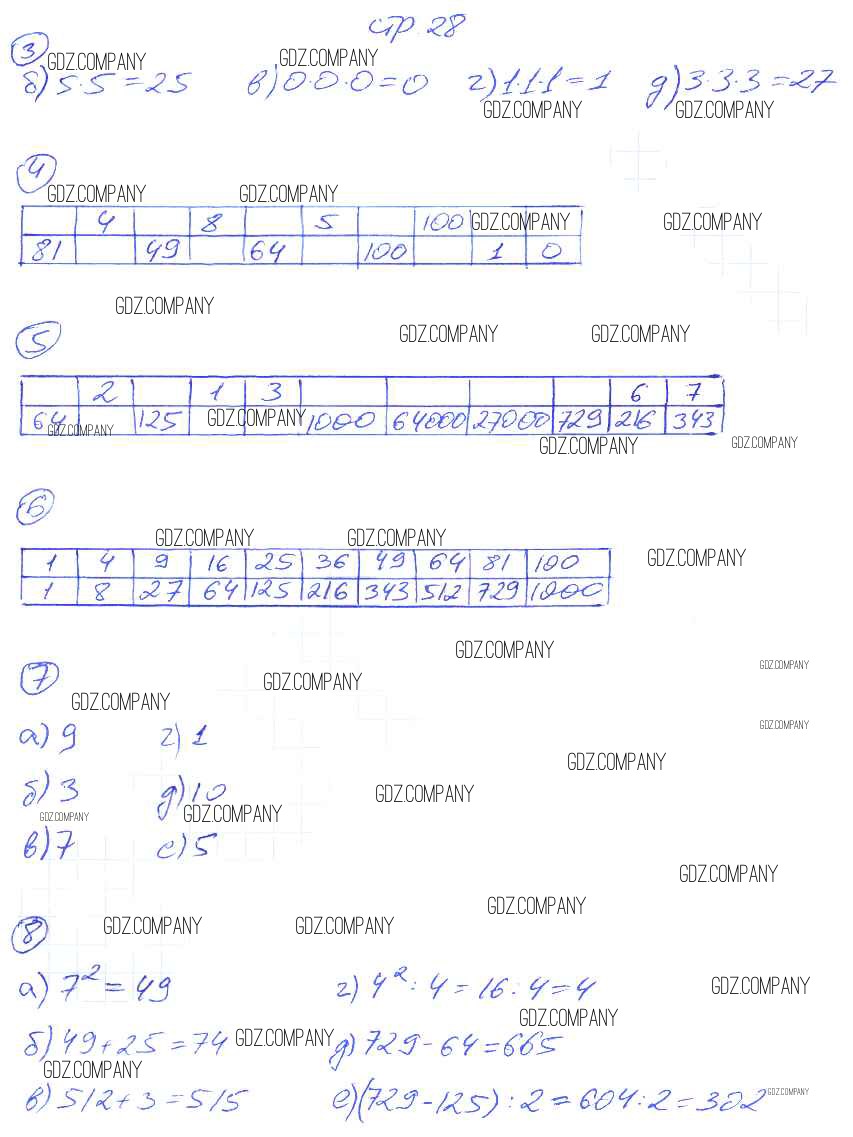 стр. 28
3
GDZ.COMPANY GDZ.COMPANY
б) 5·5=25 в) 0·0·0=0 г) 1·1·1=1 д) 3·3·3=27
GDZ.COMPANY GDZ.COMPANY
4
GDZ.COMPANY GDZ.COMPANY
4 8 5 100 GDZ.COMPANY GDZ.COMPANY
81 49 64 100 1 0
GDZ.COMPANY
5 GDZ.COMPANY GDZ.COMPANY
2 1 3 6 7
64 125 GDZ.COMPANY 1000 64000 27000 729 216 343
GDZ.COMPANY GDZ.COMPANY GDZ.COMPANY
6
GDZ.COMPANY GDZ.COMPANY
1 4 9 16 25 36 49 64 81 100 GDZ.COMPANY
1 8 27 64 125 216 343 512 729 1000
GDZ.COMPANY GDZ.COMPANY
7 GDZ.COMPANY
GDZ.COMPANY
GDZ.COMPANY
а) 9 г) 1
GDZ.COMPANY
б) 3 д) 10 GDZ.COMPANY
GDZ.COMPANY GDZ.COMPANY
в) 7 е) 5
GDZ.COMPANY
GDZ.COMPANY
8 GDZ.COMPANY GDZ.COMPANY
а) 7²=49 г) 4²:4=16:4=4 GDZ.COMPANY
GDZ.COMPANY
б) 49+25=74 GDZ.COMPANY д) 729-64=665
GDZ.COMPANY
в) 512+3=515 е) (729-125):2=604:2=302 GDZ.COMPANY